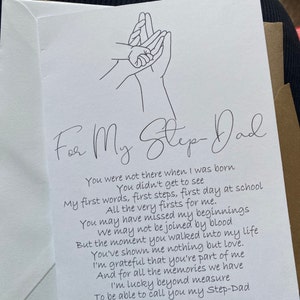 For My Step-Dad
You were not there when I was born
You didn't get to see
My first words, first steps, first day at school
All the very firsts for me.
You may have missed my beginnings
We may not be joined by blood
But the moment you walked into my life
You've shown me nothing but love.
I'm grateful that you're part of me
And for all the memories we have
I'm lucky beyond measure
To be able to call you my Step-Dad